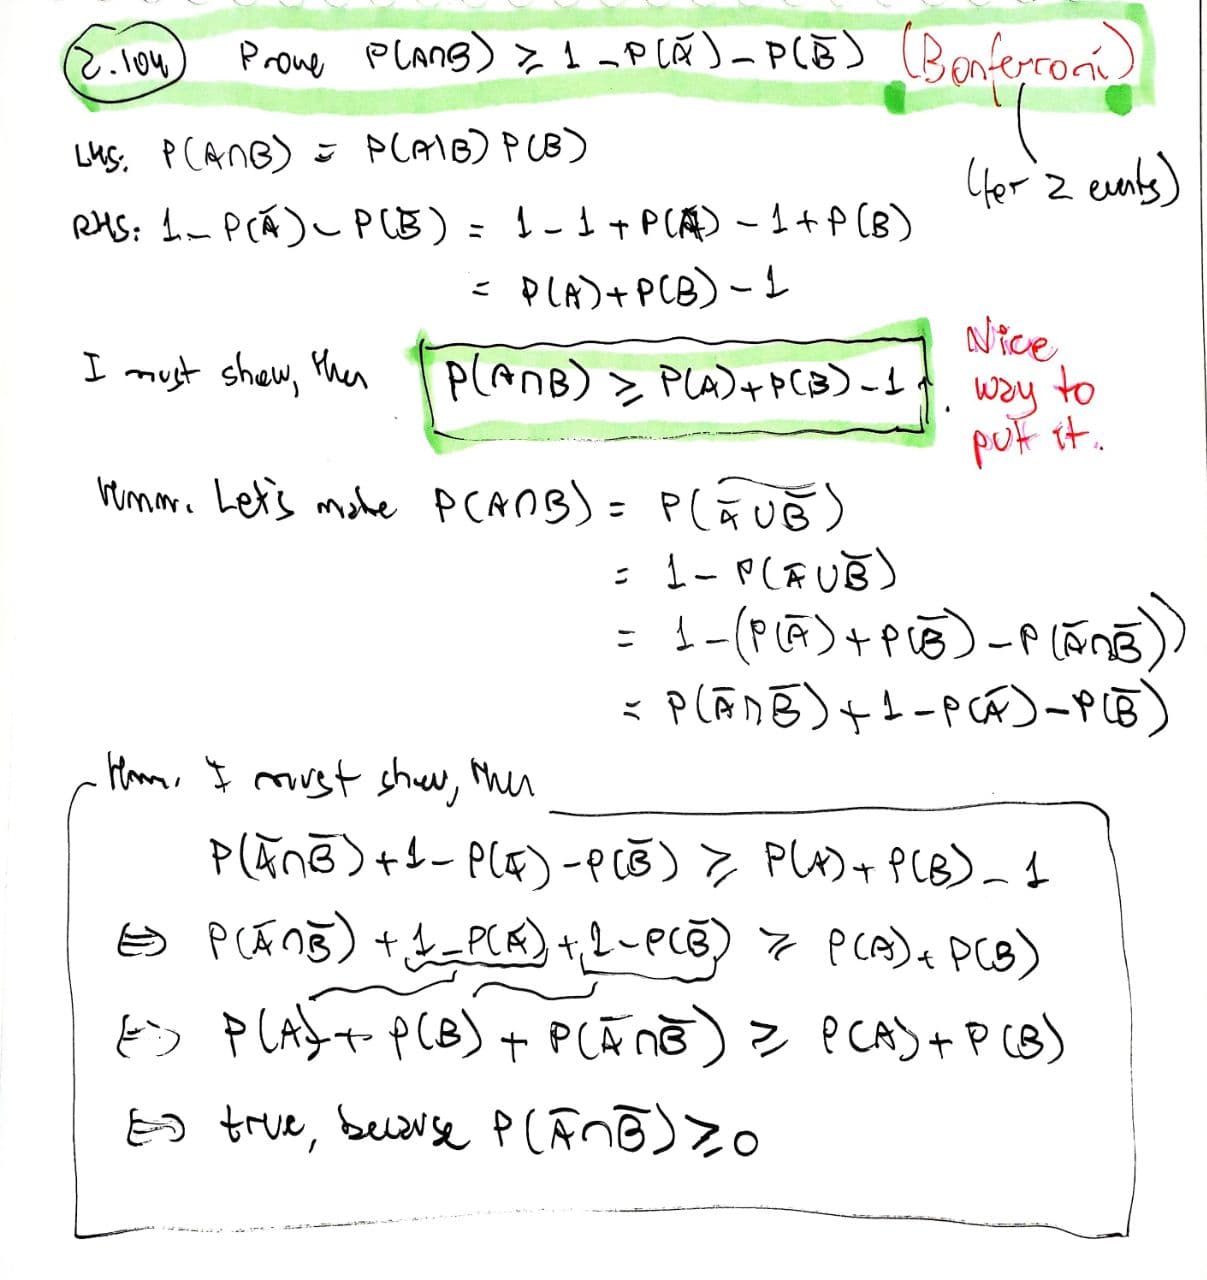 2.104 Prove P(A∩B) ≥ 1 - P(Ā) - P(B̄) (Bonferroni)
(for 2 events)
LHS: P(A∩B) = P(A|B) P(B)
RHS: 1 - P(Ā) - P(B̄) = 1 - 1 + P(A) - 1 + P(B)
= P(A) + P(B) - 1
I must show, then P(A∩B) ≥ P(A) + P(B) - 1.
Nice
way to
put it.
Hmm. Let's make P(A∩B) = P(\overline{Ā∪B̄})
= 1 - P(Ā∪B̄)
= 1 - (P(Ā) + P(B̄) - P(Ā∩B̄))
= P(Ā∩B̄) + 1 - P(Ā) - P(B̄)
Hmm. I must show, then
P(Ā∩B̄) + 1 - P(Ā) - P(B̄) ≥ P(A) + P(B) - 1
⇔ P(Ā∩B̄) + 1 - P(Ā) + 1 - P(B̄) ≥ P(A) + P(B)
⇔ P(A) + P(B) + P(Ā∩B̄) ≥ P(A) + P(B)
⇔ true, because P(Ā∩B̄) ≥ 0